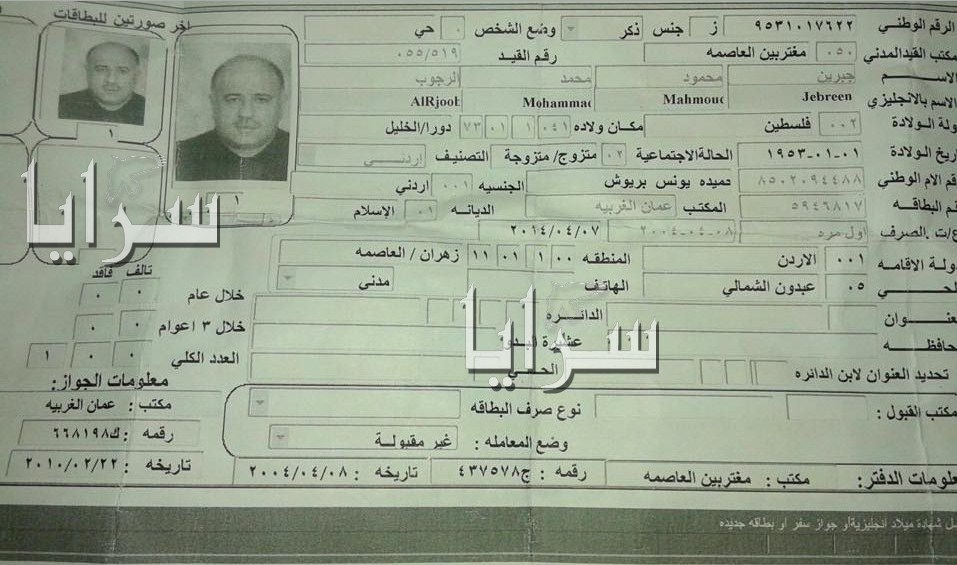 آخر صورتين للبطاقات
الرقم الوطني ٩٥٣١٠١٧٦٢٢ ز جنس ذكر وضع الشخص ٠ حي
مكتب القيد المدني ٠٥٠ مغتربين العاصمه رقم القيد ٠٥٥/٥١٩
الاســـم جبرين محمود محمد الرجوب
الاسم بالانجليزي Jebreen Mahmoud Mohammad AlRjoob
دولة الولادة ٠٠٢ فلسطين مكان ولاده ٠٤١ ١ ٠١ ٧٣ دورا/الخليل
تاريخ الولادة ١٩٥٣-٠١-٠١ الحالة الاجتماعية ٠٢ متزوج/ متزوجة التصنيف اردنـــي
رقم الام الوطني ٨٥٠٢٠٩٤٤٨٨ حميده يونس بريوش الجنسيه ٠٠١ اردني
رقم البطاقه ٥٩٤٦٨١٧ المكتب عمان الغربيه الديانه ٠١ الإسلام
ع/ت .الصرف اول مره ٢٠٠٤-٠٤-٠٨ ٢٠١٤/٠٤/٠٧
دولة الاقامه ٠٠١ الاردن المنطقه ١٠٠ ١ ٠١ ١١ زهران / العاصمه
الحـــي ٠٥ عبدون الشمالي الهاتف مدني
العنـــوان الدائره
المحافظه عشيرة البدو
تحديد العنوان لابن الدائره
مكتب القبول : نوع صرف البطاقه
وضع المعامله : غير مقبولة
معلومات الدفتر: مكتب : مغتربين العاصمه رقمه : ج٤٣٧٥٧٨ تاريخه : ٢٠٠٤/٠٤/٠٨
١
١
تالف فاقد
خلال عام ٠ ٠
خلال ٣ اعوام ٠ ٠
العدد الكلي ٠ ٠ ١
معلومات الجواز:
مكتب : عمان الغربيه
رقمه : ك٦٦٨١٩٨
تاريخه : ٢٠١٠/٠٢/٢٢
شهادة ميلاد انجليزية او جواز سفر او بطاقه جديده
سرايا
سرايا